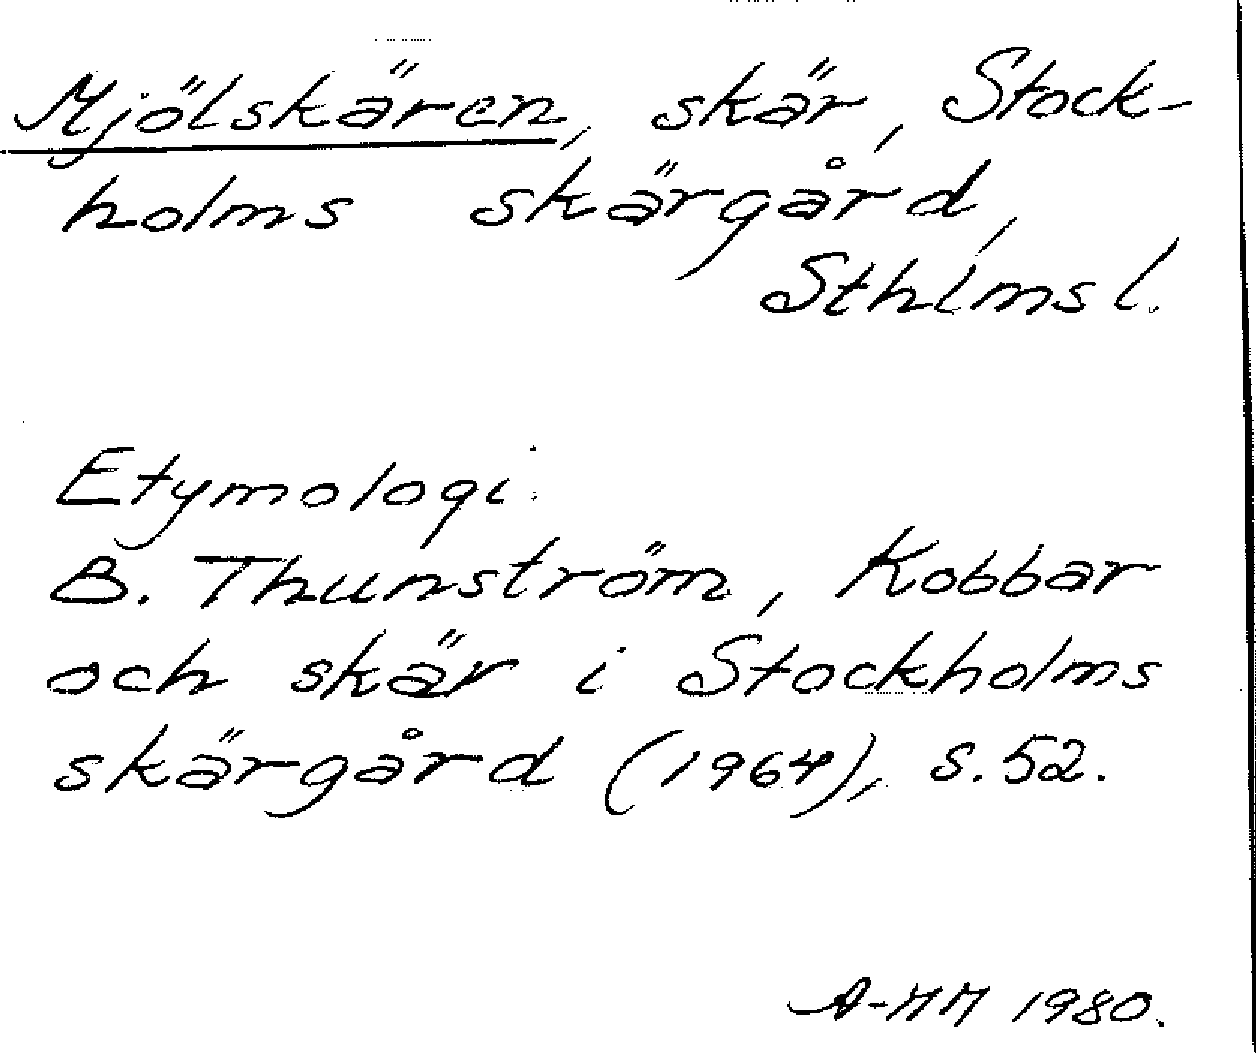 Mjölskären, skär, Stock-
holms skärgård,
Sthlms l.
Etymologi:
B. Thunström, Kobbar
och skär i Stockholms
skärgård (1964), s. 52.
A-MM 1980.